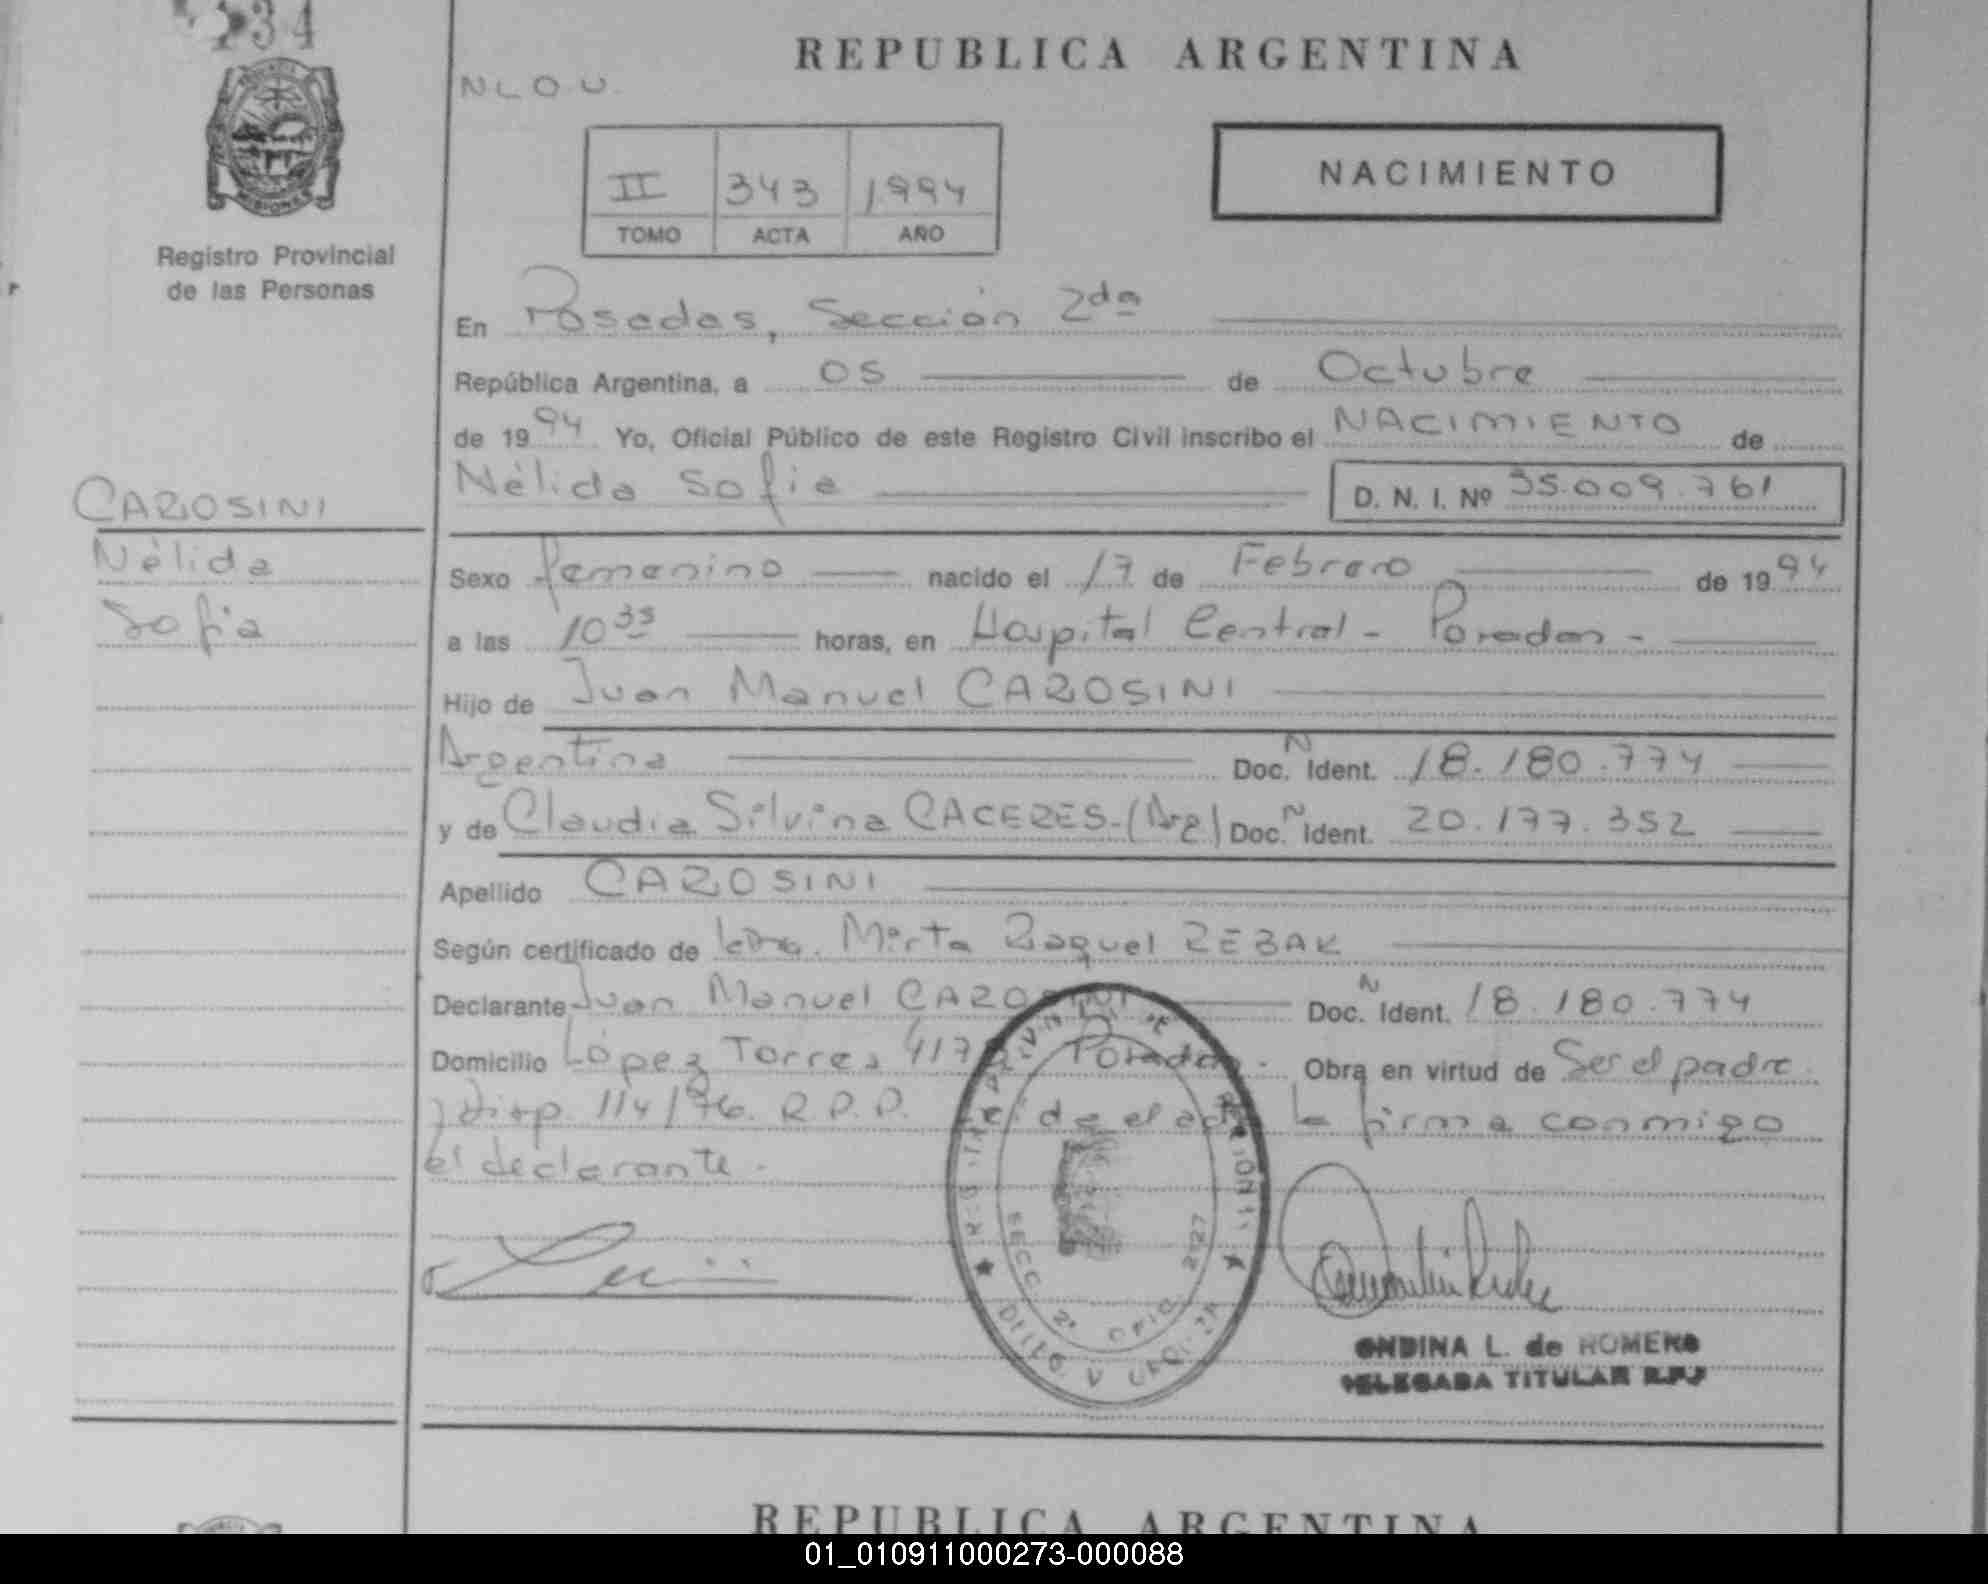 234
REPUBLICA ARGENTINA
N L O U.
NACIMIENTO
II 343 1.994
TOMO ACTA AÑO
MISIONES
Registro Provincial
de las Personas
En Posadas, Sección 2da
República Argentina, a 05 de Octubre
de 1994 Yo, Oficial Público de este Registro Civil inscribo el NACIMIENTO de
Nélida Sofia D. N. I. Nº 35.009.761
CAROSINI
Nélida
Sofia
Sexo femenino nacido el 17 de Febrero de 1994
a las 10 35 horas, en Hospital Central - Posadas -
Hijo de Juan Manuel CAROSINI
Argentina Doc. N Ident. 18.180.774
y de Claudia Silvina CACERES - (Arg) Doc. N Ident. 20.177.352
Apellido CAROSINI
Según certificado de Mirta Raquel REBAK
Declarante Juan Manuel CAROSINI Doc. N Ident. 18.180.774
Domicilio López Torres Posadas - Obra en virtud de Ser el padre.
Disp. 114/76. R.P.P. el acta la firma conmigo
el declarante.
SECC. 2ª OFIC. 2927
DELEG. V. URQUIZA
ONDINA L. de ROMERO
DELEGADA TITULAR R.P.P
REPUBLICA ARGENTINA
01_010911000273-000088